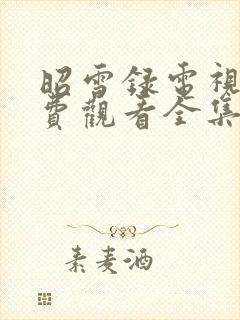 昭雪録電視
費觀看全集
素麦酒